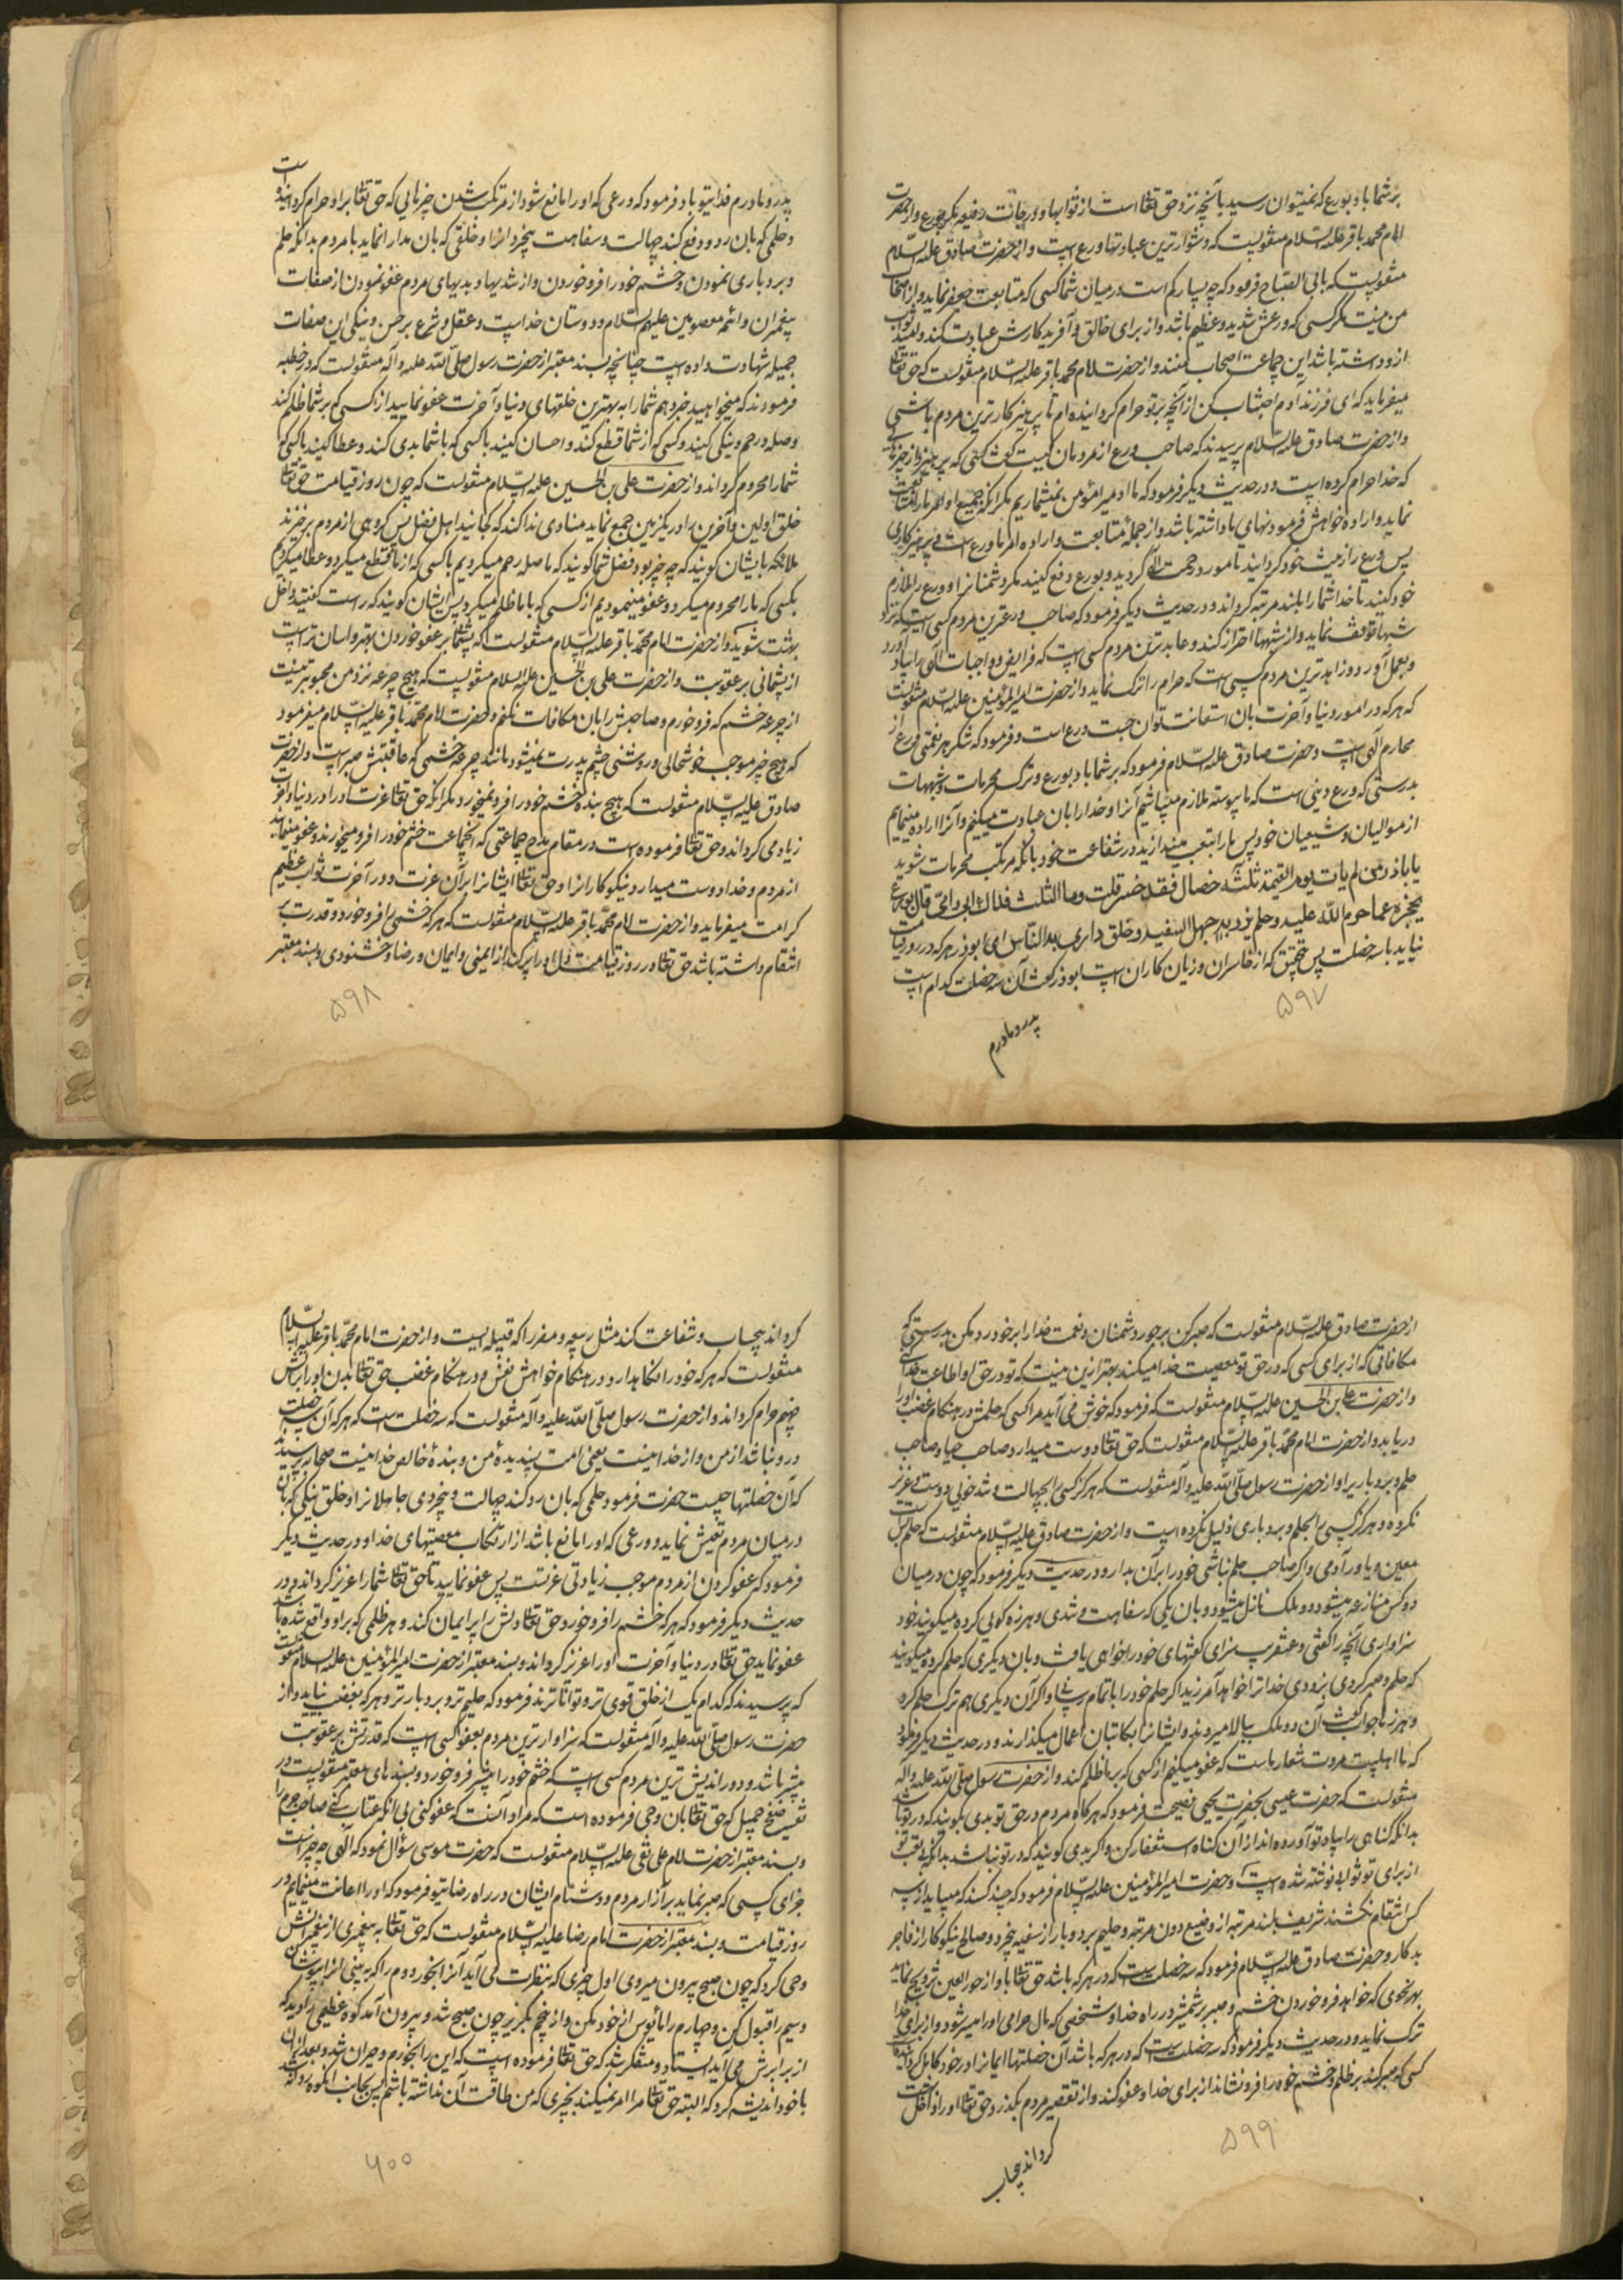 بر شما باد بورع که نمیتوان رسید بآنچه نزد حق تعالی است از ثوابها و درجات رفیعه مگر بورع و از حضرت
امام محمد باقر علیه السّلام منقولست که دشوارترین عبادتها ورع است و از حضرت صادق علیه السّلام
منقولست که بابی الصباح فرمود که چه بسیار کم است در میان شما کسی که متابعت جعفر نماید و از اصحاب
من نیست مگر کسی که ورعش شدید و عظیم باشد و از برای خالق و آفریدکارش عبادت کند و امید ثواب
از او داشته باشد این جماعت اصحاب منند و از حضرت امام محمد باقر علیه السّلام منقولست که حق تعالی
میفرماید که ای فرزند آدم اجتناب کن از آنچه بر تو حرام کردانیده ام تا پرهیزکارترین مردم باشی
و از حضرت صادق علیه السّلام پرسیدند که صاحب ورع از مردمان کیست گفت کسی که بپرهیزد از چیزهائی
که خدا حرام کرده است و در حدیث دیگر فرمود که ما آدمیرا مؤمن نمیشماریم مگر آنکه جمیع اوامر ما را متابعت
نماید و اراده و خواهش فرمودنهای ما داشته باشد و از جملهٔ متابعت و اراده امر ما ورع است و پرهیزکاری
پس ورع را زینت خود کردانید تا مورد رحمت الهی گردید و بورع دفع کنید مکر دشمنانرا و ورع را ملازم
خود کنید تا خدا شما را بلند مرتبه کرداند و در حدیث دیگر فرمود که صاحب ورع ترین مردم کسی است که نزد
شبهها توقف نماید و از شبهها احتراز کند و عابدترین مردم کسی است که فرایض و واجبات الهی را بپا دارد
و بعمل آورد و زاهدترین مردم کسی است که حرام را ترک نماید و از حضرت امیر المؤمنین علیه السّلام منقولست
که هر که در امور دنیا و آخرت بان استعانت توان جست ورع است و فرمود که شکر هر نعمتی ورع از
محارم الهی است و حضرت صادق علیه السّلام فرمود که بر شما باد بورع و ترک محرمات و شبهات
بدرستی که ورع دینی است که ما پیوسته ملازم میباشیم آنرا و خدا را بان عبادت میکنیم و آنرا اراده مینماییم
از موالیان و شیعیان خود پس ما را بتعب میندازید در شفاعت خود بآنکه مرتکب محرمات شوید
یا باذر من لم یات یوم القیمة ثلث خصال فقد خسر قلت وما الثلث فداك ابی و امی قال ورع
یحجزه عما حرم اللّه علیه و حلم یرد به جهل السفیه و خلق یداری به الناس ای ابوذر هر که در روز قیامت
نیاید با سه خصلت پس بتحقیق که از خاسران و زیان کاران است ابوذر گفت آن سه خصلت کدام است
۵۹۷
پدر و مادرم
پدر و مادرم فدای تو باد فرمود که ورعی که او را مانع شود از مرتکب شدن چیزهایی که حق تعالی بر او حرام کردانیده است
و حلمی که بان رد و دفع کند جهالت و سفاهت بیخردانرا و خلقی که بان مدارا نماید با مردم بدانکه حلم
و بردباری نمودن و خشم خود را فرو خوردن و از شدیها و بدیهای مردم عفو نمودن از صفات
پیغمبران و ائمه معصومین علیهم السّلام و دوستان خداست و عقل و شرع بر حسن و نیکی این صفات
جمیله شهادت داده است چنانچه بسند معتبر از حضرت رسول صلّی اللّه علیه و آله منقولست که در خطبه
فرمودند که میخواهید خبر دهم شما را به بهترین خلقتهای دنیا و آخرت عفو نمایید از کسی که بر شما ظلم کند
وصله رحم و نیکی کنید و کسی که از شما قطع کند و احسان کنید با کسی که با شما بدی کند و عطا کنید با کسی که
شما را محروم کرداند و از حضرت علی بن الحسین علیه السّلام منقولست که چون روز قیامت حق تعالی
خلق اولین و آخرین را در یکزمین جمع نماید منادی ندا کند که کجایند اهل فضل پس گروهی از مردم برخیزند
ملائکه بایشان کویند که چه چیز بود فضل شما کویند که ما صله رحم میکردیم با کسی که از ما قطع میکرد و عطا میکردیم
بکسی که ما را محروم میکرد و عفو مینمودیم از کسی که با ما ظلم میکرد پس بایشان کویند که راست گفتید داخل
بهشت شوید و از حضرت امام محمّد باقر علیه السّلام منقولست که پشیمانی بر عفو خوردن بهتر و اسان تر است
از پشمانی بر عقوبت و از حضرت علی بن الحسین علیه السلام منقولست که هیچ جرعه نزد من محبوبتر نیست
از جرعه خشم که فرو خورم و صاحبش را بان مکافات نکنم و حضرت امام محمّد باقر علیه السّلام میفرمود
که هیچ چیز موجب خوشحالی و روشنی چشم پدرت نمیشود مانند جرعه خشمی که عاقبتش صبر است و از حضرت
صادق علیه السّلام منقولست که هیچ بنده خشم خود را فرو نمیخورد مگر آنکه حق تعالی عزت او را در دنیا و آخرت
زیاد می کرداند و حق تعالی فرموده است در مقام مدح جماعتی که آنجماعت خشم خود را فرو میخورند و عفو مینمایند
از مردم و خدا دوست میدارد نیکوکارانرا و حق تعالی ایشانرا بر آن عزت و در آخرت ثواب عظیم
کرامت میفرماید و از حضرت امام محمّد باقر علیه السّلام منقولست که هر که خشمی را فرو خورد و قدرت بر
انتقام داشته باشد حق تعالی در روز قیامت دل او را پر کند از ایمنی و ایمان و رضا و خشنودی و بسند معتبر
۵۹۸
از حضرت صادق علیه السّلام منقولست که صبر کن بر جور دشمنان و نعمت خدا را بر خود رد مکن بدرستی که
مکافاتی که از برای کسی که در حق تو معصیت خدا میکند بهتر ازین نیست که تو در حق او اطاعت خدا کنی
و از حضرت علی بن الحسین علیه السّلام منقولست که فرمود که خوش می آید مرا کسی که حلمش در هنگام غضب او را
دریابد و از حضرت امام محمّد باقر علیه السّلام منقولست که حق تعالی دوست میدارد صاحب حیا و صاحب
حلم و بردباریرا و از حضرت رسول صلّی اللّه علیه و آله منقولست که هرگز کسی را بجهالت و شد خوئی دوست و عزیز
نکرده و هرگز کسی را بحلم و بردباری ذلیل نکرده است و از حضرت صادق علیه السّلام منقولست که حلم بس است
معین و یاور آدمی و اگر صاحب حلم نباشی خود را بر آن بدار و در حدیث دیگر فرمود که چون در میان
دو کس منازعه میشود دو ملک نازل میشود و بان یکی که سفاهت و تندی و هرزه کوئی کرده میکویند خود
سزاواری آنچه را گفتی و عنقریب سزای گفتهای خود را خواهی یافت و بان دیگری که حلم کرده میکویند
که حلم و صبر کردی بزودی خدا ترا خواهد آمرزید اگر حلم خود را باتمام رسانی و اگر آن دیگری هم ترک حلم کرد
و هرزه را جواب گفت آن دو ملک ببالا میروند و ایشانرا بکاتبان اعمال میکذارند و در حدیث دیگر فرمود
که ما اهلبیت مروت شعار ماست که عفو میکنیم از کسی که بر ما ظلم کند و از حضرت رسول صلی اللّه علیه و آله
منقولست که حضرت عیسی بحضرت یحیی نصیحت فرمود که هرکاه مردم در حق تو بدی بکویند که در تو باشد
بدانکه گناهی را بیاد تو آورده اند از آن گناه استغفار کن و اگر بدی کویند که در تو نباشد بدانکه بی تعب تو
از برای تو ثوابی نوشته شده است و حضرت امیر المؤمنین علیه السّلام فرمود که چند کسند که میباید از سه
کس انتقام نکشند شریف بلند مرتبه از وضیع دون مرتبه و حلیم بردبار از سفیه بیخرد و صالح نیکوکار از فاجر
بدکار و حضرت صادق علیه السّلام فرمود که سه خصلت است که در هر که باشد حق تعالی باو از حور العین ترویج نماید
بهر نحوی که خواهد فرو خوردن خشم و صبر بر شمشیر در راه خدا و شخصی که مال حرامی او را میسر شود و از برای خدا
ترک نماید و در حدیث دیگر فرمود که سه خصلت است که در هر که باشد آن خصلتها ایمانرا در خود کامل کردانیده است
کسی که صبر کند بر ظلم و خشم خود را فرو نشاند از برای خدا و عفو کند و از تقصیر مردم بگذرد حق تعالی او را داخل بهشت
۵۹۹
کرداند بیحساب
کرداند بیحساب و شفاعت کند مثل ربیعه و مضر را که قبیله ایست و از حضرت امام محمّد باقر علیه السّلام
منقولست که هر که خود را نکاهدارد در هنگام خواهش نفس و در هنگام غضب حق تعالی بدن او را بر آتش
جهنم حرام کرداند و از حضرت رسول صلّی اللّه علیه و آله منقولست که سه خصلت است که هر که آن سه خصلت
در او نباشد از من و از خدا نیست یعنی امت پسندیدهٔ من و بندهٔ خالص خدا نیست صحابه پرسیدند
که آن خصلتها چیست حضرت فرمود حلمی که بان رد کند جهالت و بیخردی جاهلانرا و خلق نیکی که بان
در میان مردم تعیش نماید و ورعی که او را مانع باشد از ارتکاب معصیتهای خدا و در حدیث دیگر
فرمود که عفو کردن از مردم موجب زیادتی عزتست پس عفو نمایید تا حق تعالی شما را عزیز کرداند و در
حدیث دیگر فرمود که هر که خشم را فرو خورد حق تعالی دلش را پر ایمان کند و هر ظلمی که بر او واقع شده باشد
عفو نماید حق تعالی در دنیا و آخرت او را عزیز کرداند و بسند معتبر از حضرت امیر المؤمنین علیه السلام منقولست
که پرسیدند که کدام یک از خلق قوی تر و تواناترند فرمود که حلیم تر و بردبارتر و هر که بغضب نیاید و از
حضرت رسول صلّی اللّه علیه و آله منقولست که سزاوارترین مردم بعفو کسی است که قدرتش بر عقوبت
بیشتر باشد و دوراندیش ترین مردم کسی است که خشم خود را بیشتر فرو خورد و بسندهای معتبر منقولست در
تفسیر صفح جمیل که حق تعالی بان وحی فرموده است که مراد آنست که عفو کنی بی آنکه عتاب کنی صاحب جرم را
و بسند معتبر از حضرت امام علی نقی علیه السّلام منقولست که حضرت موسی سؤال نمود که الهی چه چیز است
جزای کسی که صبر نماید بر آزار مردم و دشنام ایشان در راه رضای تو فرمود که او را اعانت مینمایم در
روز قیامت و بسند معتبر از حضرت امام رضا علیه السّلام منقولست که حق تعالی به پیغمبری از پیغمبرانش
وحی کرد که چون صبح بیرون میروی اول چیزی که بنظرت می آید آنرا بخور و دوم را که ببینی آنرا بپوشان
وسیم را قبول کن و چهارم را مأیوس از خود مکن و از پنجم بگریز چون صبح شد و بیرون آمد کوه عظیمی را دید که
از برابرش می آید ایستاد و متفکر شد که حق تعالی فرموده است که این را بخورم و حیران شد و بعد از آن
با خود اندیشه کرد که البته حق تعالی مرا امر نمیکند بچیزی که من طاقت آن نداشته باشم پس بجانب آنکوه روانه شد
۶۰۰